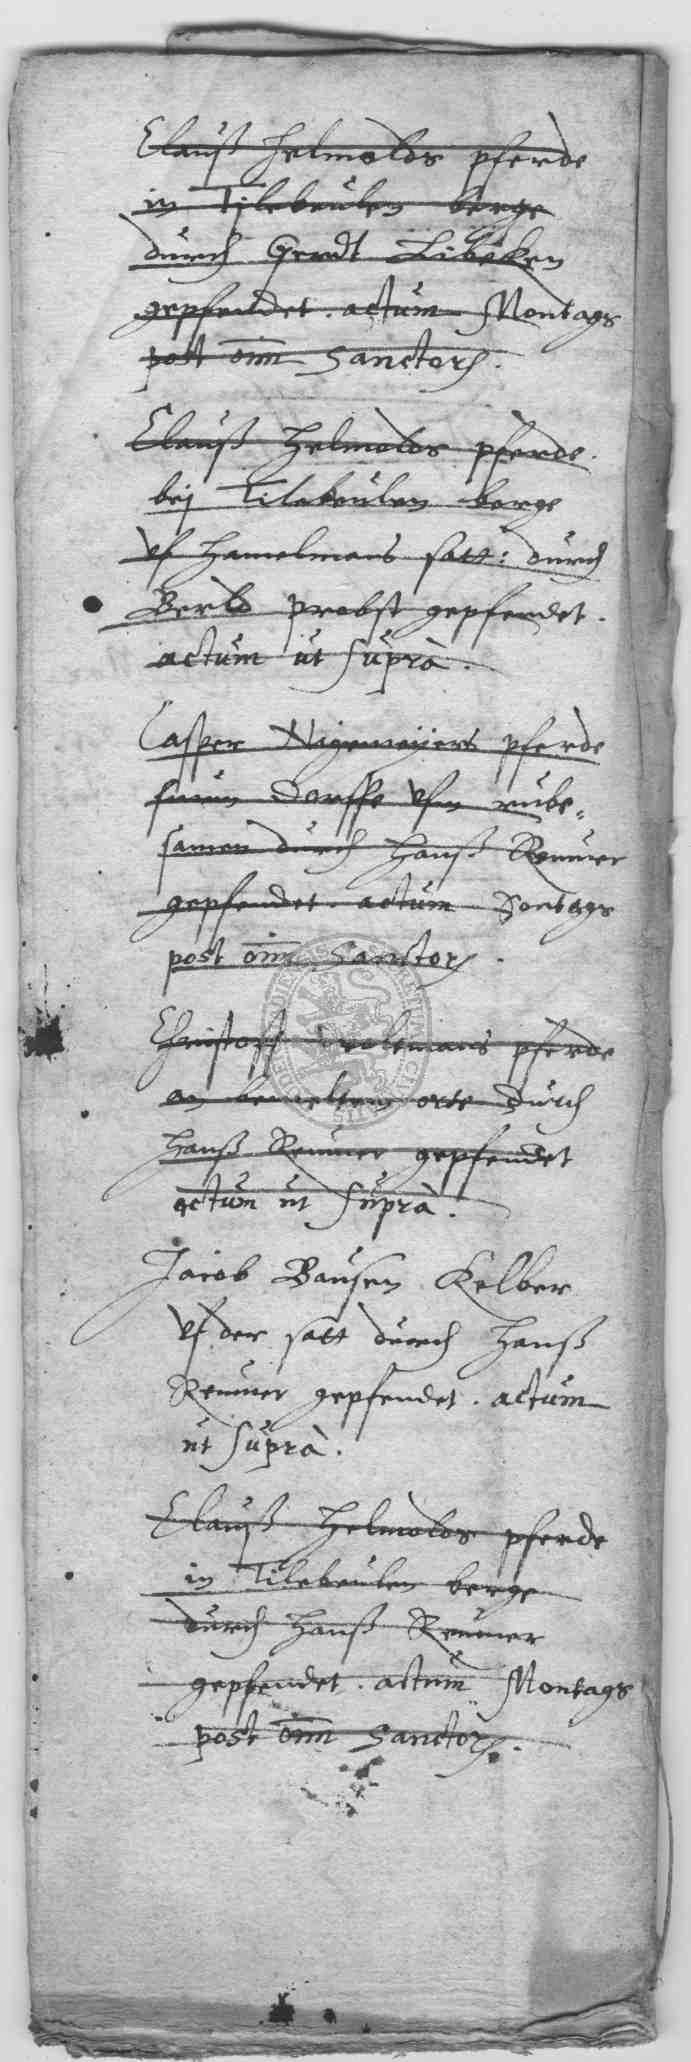 Clauß Helmolds pferde
in Tilebeulen berge
durch Gerdt Libeken
gepfendet. actum Montags
post oīm Sanctor.
Clauß Helmolds pferde.
bej Tilebeulen berge
uf Hamelmans satt: durch
Berld Probst gepfendet.
actum ut suprà.
Casper Nigemeijers pferde
furm Dorffe ufm rube-
samen durch Hanß Remmer
gepfendet. actum Sontags
post oīm Sanctor.
Christoff pferde
an bemeltem orte durch
Hanß Remmer gepfendet
actum ut suprà.
Jacob Bausen Kelber
uf der satt durch Hanß
Remmer gepfendet. actum
ut suprà.
Clauß Helmolds pferde
in Tilebeulen berge
durch Hanß Remmer
gepfendet. actum Montags
post oīm Sanctor.